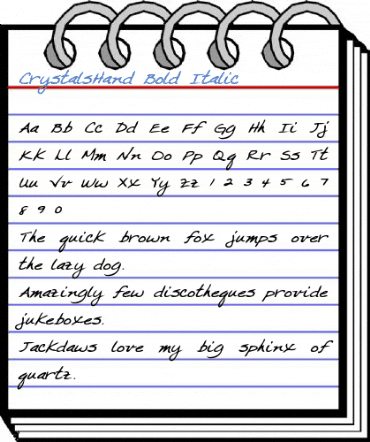 CrystalsHand Bold Italic
Aa Bb Cc Dd Ee Ff Gg Hh Ii Jj
Kk Ll Mm Nn Oo Pp Qq Rr Ss Tt
Uu Vv Ww Xx Yy Zz 1 2 3 4 5 6 7
8 9 0
The quick brown fox jumps over
the lazy dog.
Amazingly few discotheques provide
jukeboxes.
Jackdaws love my big sphinx of
quartz.